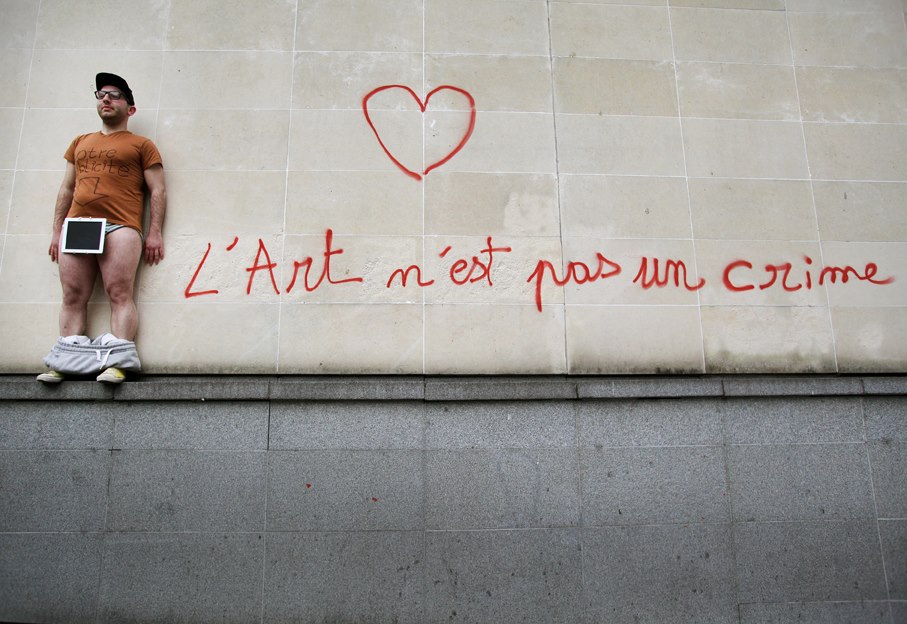 otre
L'Art n'est pas un crime